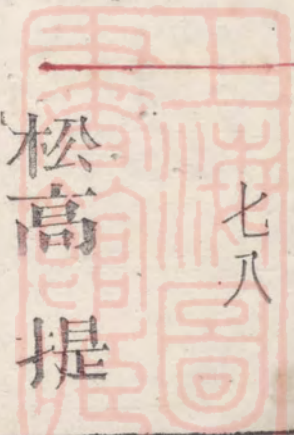 七八
松高 提